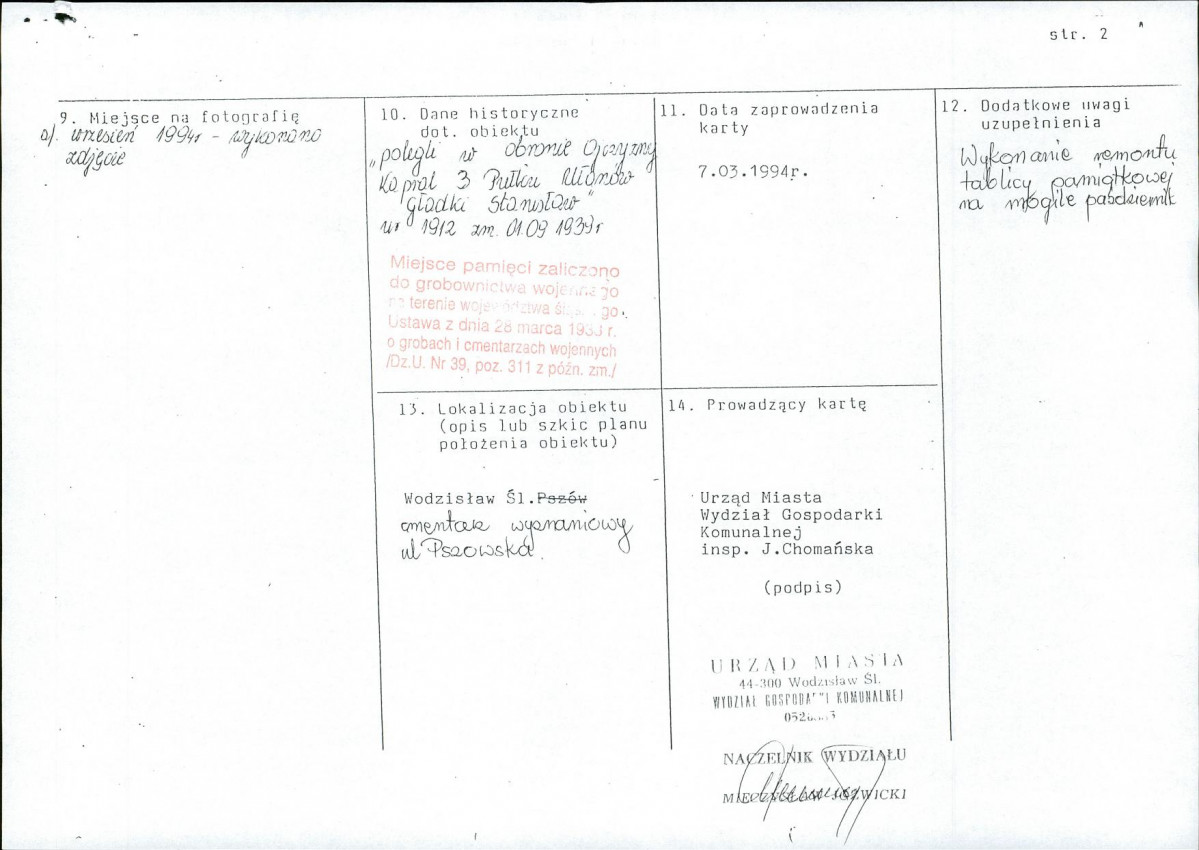 str. 2
9. Miejsce na fotografię
a/. wrzesień 1994r - wykonano
zdjęcie
10. Dane historyczne
dot. obiektu
„polegli w obronie Ojczyzny
Kapral 3 Pułku Ułanów
Gładki Stanisław"
ur 1912 zm. 01.09 1939r
Miejsce pamięci zaliczono
do grobownictwa wojennego
na terenie województwa
Ustawa z dnia 28 marca 1933 r.
o grobach i cmentarzach wojennych
/Dz.U. Nr 39, poz. 311 z późn. zm./
11. Data zaprowadzenia
karty
7.03.1994r.
12. Dodatkowe uwagi
uzupełnienia
Wykonanie remontu
tablicy pamiątkowej
na mogile paśdziernik
13. Lokalizacja obiektu
(opis lub szkic planu
położenia obiektu)
Wodzisław Śl.Pszów
cmentarz wyznaniowy
ul Pszowska.
14. Prowadzący kartę
Urząd Miasta
Wydział Gospodarki
Komunalnej
insp. J.Chomańska
(podpis)
URZĄD MIASTA
44-300 Wodzisław Śl.
WYDZIAŁ GOSPODARKI KOMUNALNEJ
NACZELNIK WYDZIAŁU